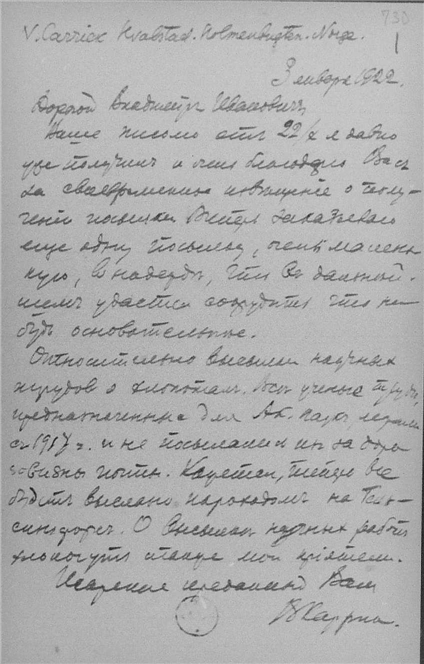 730
1
V. Carrick Hvalstad. Holmenbugten. Norge.
3 января 1922.
Дорогой Владимиръ Ивановичъ,
Ваше письмо отъ 22/X я давно
уже получилъ и очень благодарю Васъ
за своевременное извѣщение о полу-
чении посылки.
еще одну посылку, очень малень-
кую, въ надежде, что въ дальней-
шемъ удастся соорудить что ни
будь основательнѣе.
Относительно высылки научныхъ
трудовъ я хлопоталъ. Всѣ ученые труды,
предназначенные для Ак. Наукъ, лежали
съ 1917 г. и не посылались из за доро-
говизны почты. Кажется, теперь все
будетъ выслано пароходомъ на Гель-
сингфорсъ. О высылкѣ научныхъ работъ
хлопочутъ также мои приятели.
Искренне преданный Вамъ
В Каррикъ.